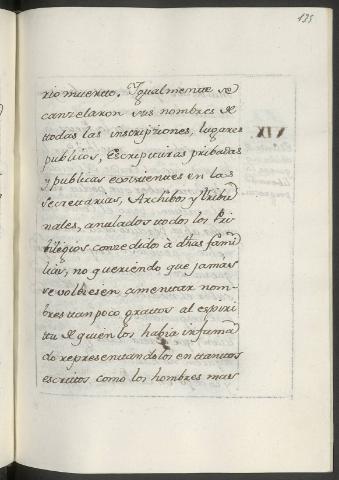 135
rio muerto. Igualmente se
canzelaron sus nombres de
todas las inscriptiones, lugares
publicos, escripturas pribadas
y publicas existentes en las
Secretarias, Archibos y Tribu-
nales, anulados todos los Pri-
bilegios conzedido à dhas fami-
lias, no queriendo que jamàs
se volbiesen amentar nom-
bres tan poco gratos al espiri-
tu de quien los habia infama-
do representandolos en tantos
escritos como los hombres mas
XIV